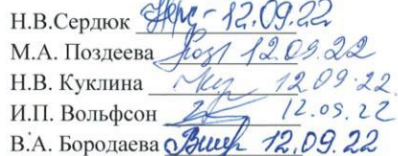 Н.В.Сердюк 12.09.22
М.А. Поздеева 12.09.22
Н.В. Куклина 12.09.22.
И.П. Вольфсон 12.09.22
В.А. Бородаева 12.09.22